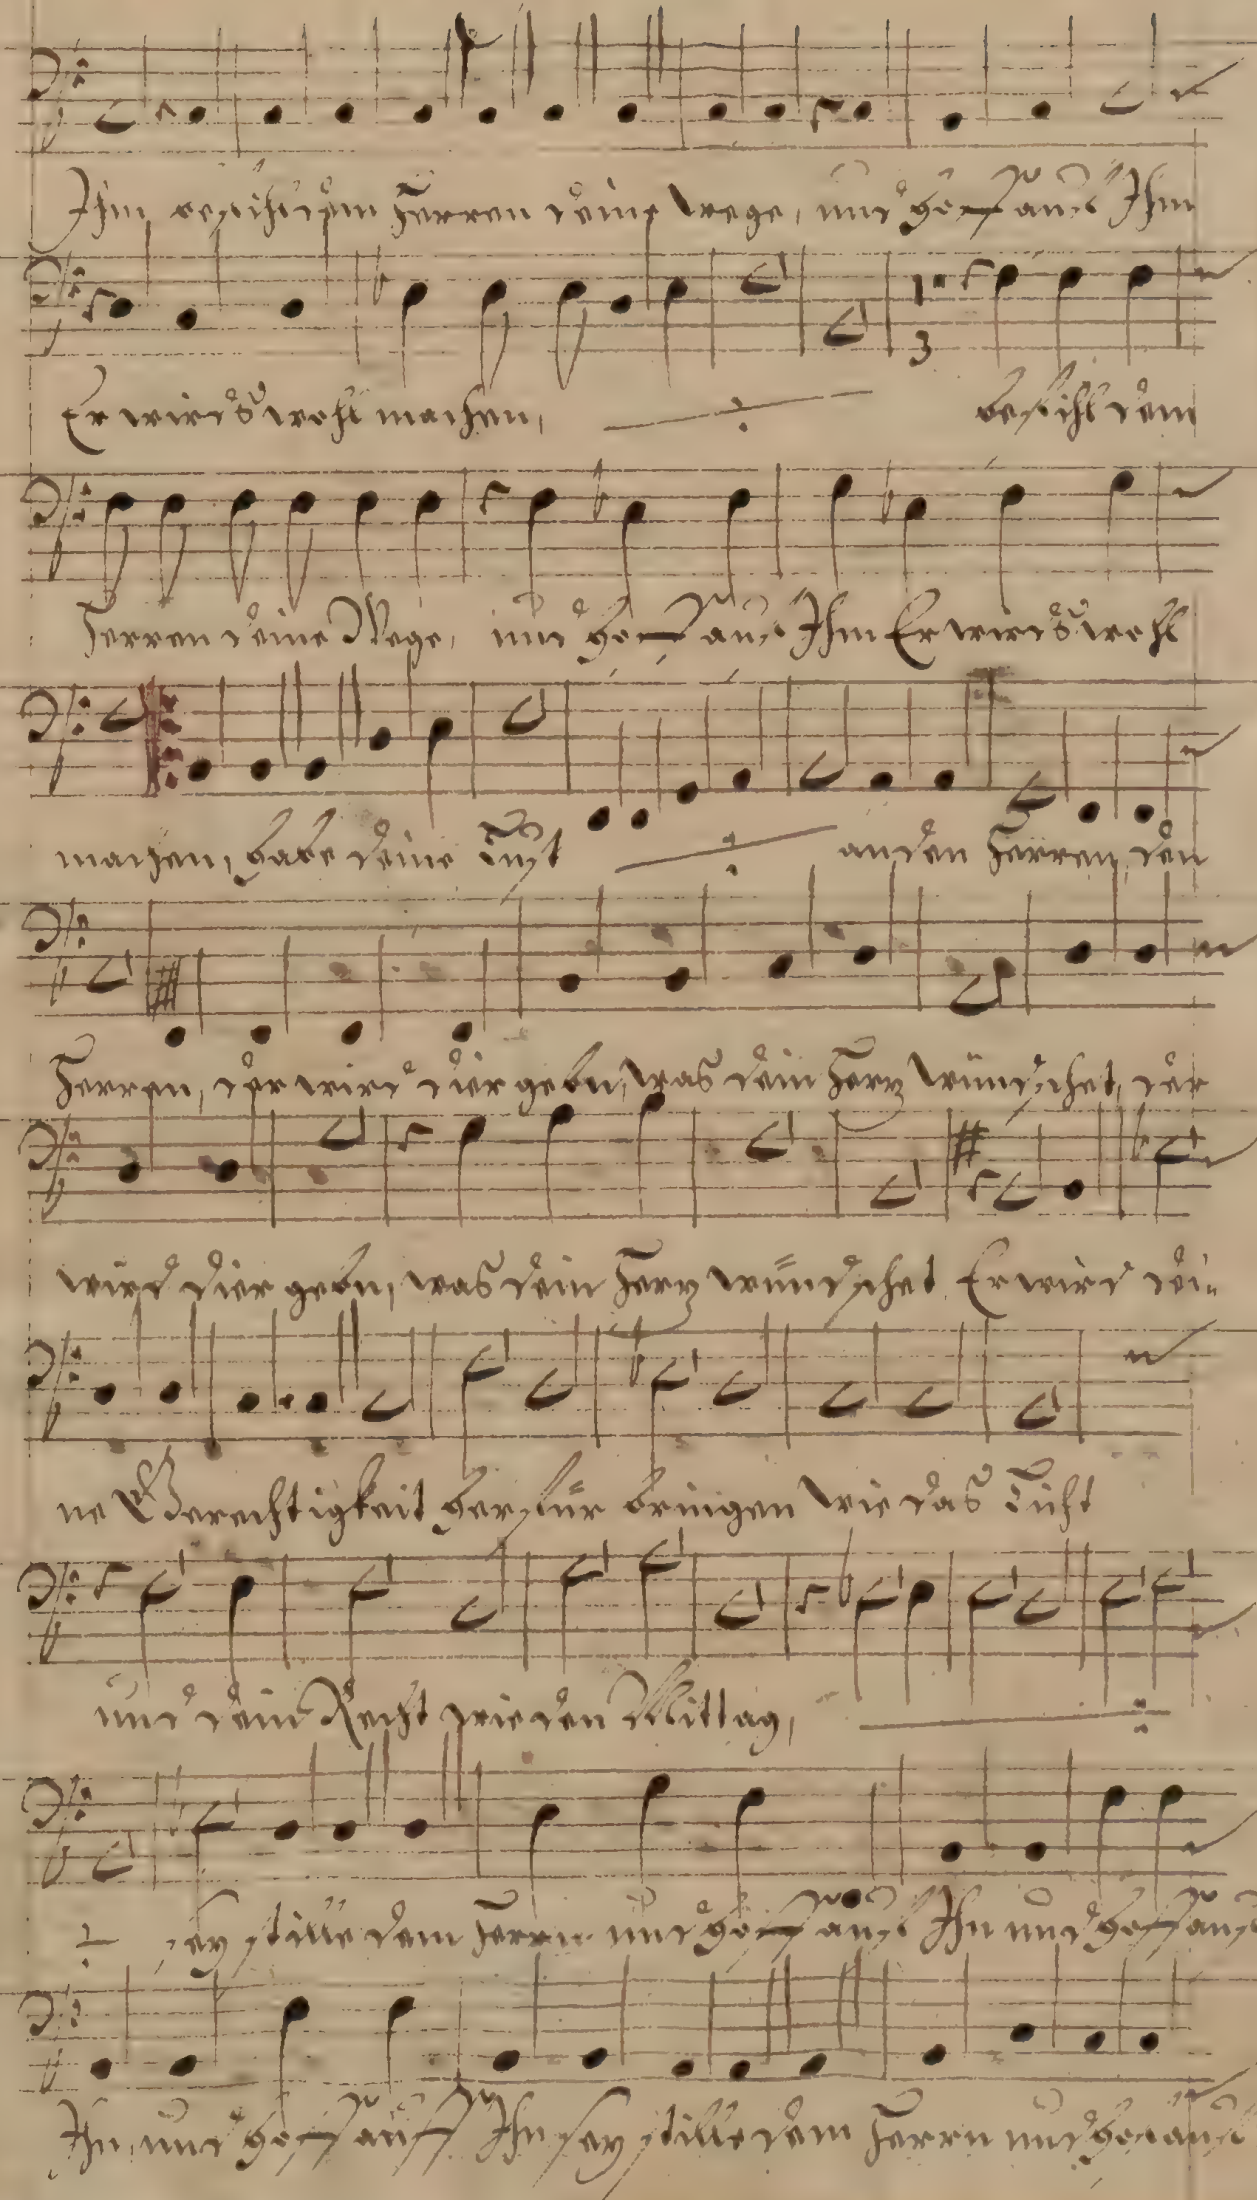 Ihm, befihl dem Herren deine wege, und hoff auff Ihm
Er wird's wohl machen, befihl dem
Herren deine Wege, und hoff auff Ihm Er wird's wohl
machen, habe deine Lust an den Herren, den
Herren, der wird dier gebn, was dein Hertz wündschet, der
wird dier gebn, was dein Hertz wündschet Er wird dei-
ne Gerechtigkeit herfür bringen wie das Licht
und dein Recht wie den Mittag,
sey stille dem Herrn und hoff auff Ihn und hoff auff
Ihn, und hoff auff Ihn sey stille dem Herrn und hof auff